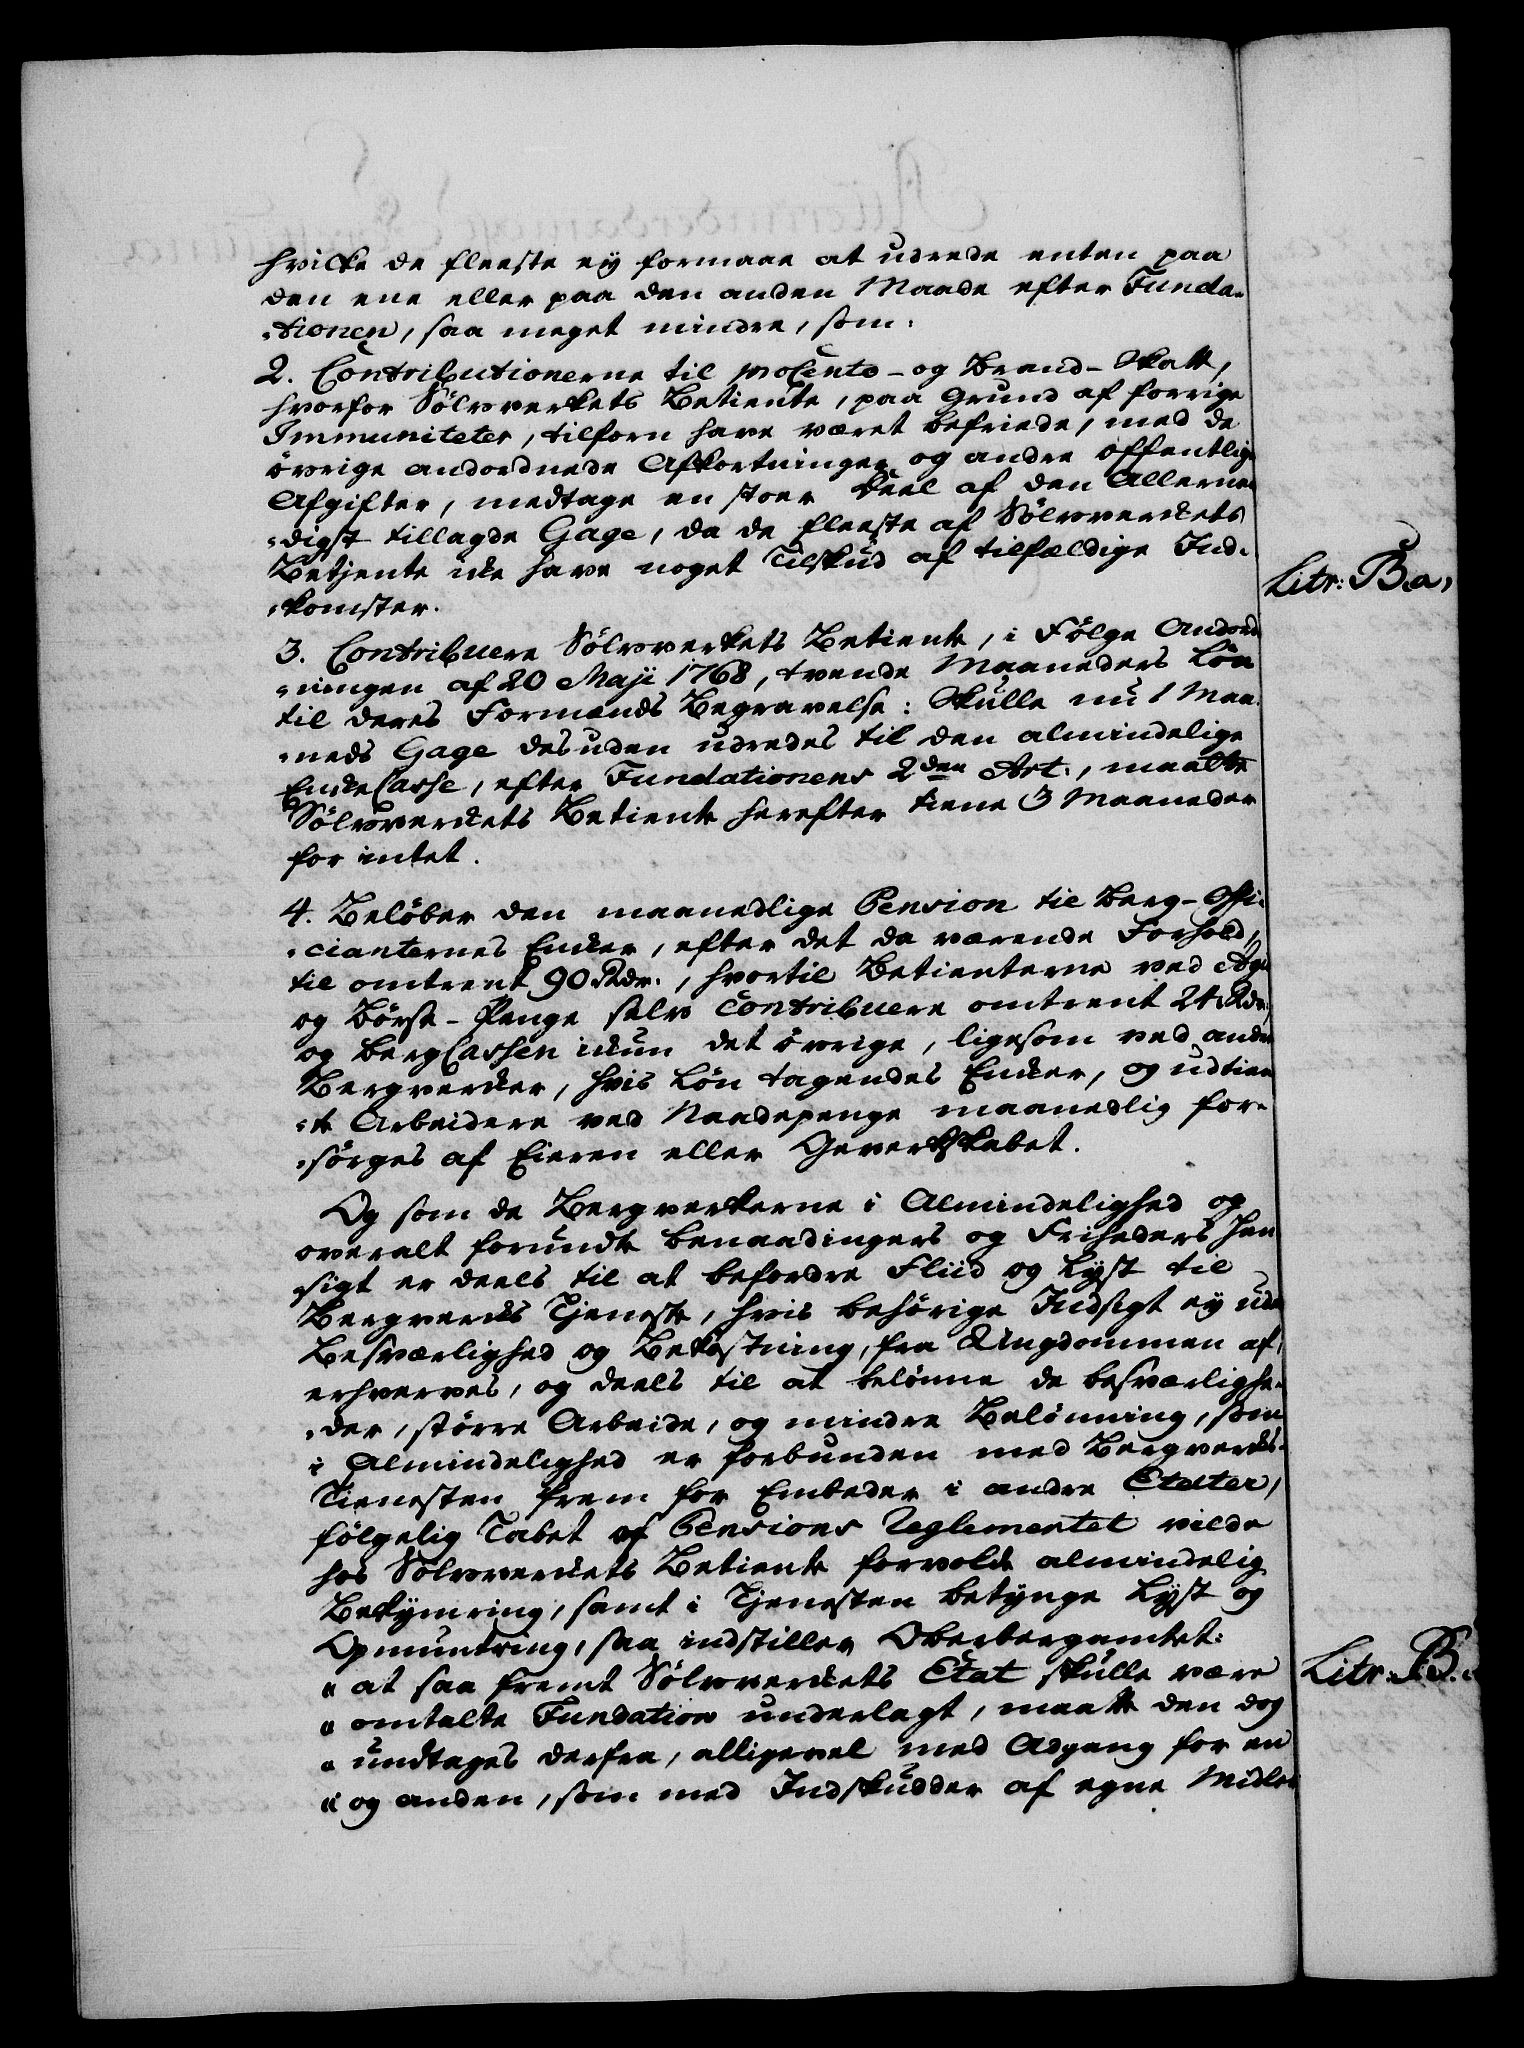 hvilke de fleeste ey formaae at udrede enten paa
den ene eller paa den anden Maade efter Funda-
tionen, saa meget mindre, som:
2. Contributionerne til proCento- og Brand-Skatt,
hvorfor Sølvverkets Betiente, paa Grund af forrige
Immuniteter, tilforn have været befriede, med de
övrige andordnede Afkortninger og andre offentlige
Afgifter, medtage en stoer Deel af den Allernaa-
digst tillagde Gage, da de fleeste af Sølvverckets
Betjente icke have noget Tilskud af tilfældige Ind-
komster.
3. Contribuere Sølvverkets Betiente, i Følge Andord-
ningen af 20 Maji 1768, tvende Maaneders Løn
til deres Formænds Begravelse: Skulle nu 1 Maa-
neds Gage desuden udredes til den almindelige
EnckeCasse, efter Fundationens 2den Art., maatte
Sølvverckets Betiente herefter tiene 3 Maaneder
for intet.
4. Beløber den maanedlige Pension til Berg-Offi-
cianternes Encker, efter det da værende Forhold,
til omtrent 90 Rdr., hvortil Betienterne ved Age
og Börse-Penge selv Contribuere omtrent 24 Rdr,
og BergCassen ickun det övrige, ligesom ved andre
Bergvercker, hvis Løn tagendes Encker, og udtien-
te Arbeidere ved Naadepenge maanedlig for-
sørges af Eieren eller Gewerkskabet.
Og som de Bergverkerne i Almindelighed og
overalt forundte benaadingers og Friheders Hen
sigt er deels til at befordre Fliid og Lyst til
Bergvercks Tjeneste, hvis behörige Indsigt ey uden
Besværlighed og Bekostning, fra Ungdommen af,
erhverves, og deels til at belønne de besværlighe-
der, större Arbeide, og mindre Belönning, som
i Almindelighed er forbunden med Bergvercks-
Tienesten frem for Embeder i andre Etater,
følgelig Tabet af Pensions Reglementet vilde
hos Sølvverckets Betiente forvolde almindelig
Bekymring, samt i Tjenesten betynge Lyst og
Opmuntring, saa indstiller Oberbergamtet:
" at saa fremt Sølvverckets Etat skulle være
" omtalte Fundation underlagt, maatte den dog
" undtages derfra, alligevel med Adgang for en
" og anden, som med Indskudder af egne Midler
Litr: B.a,
Litr. B.